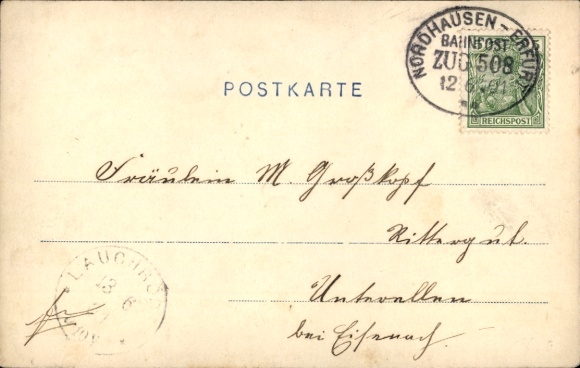 NORDHAUSEN - ERFURT
BAHNPOST
ZUG 508
12 6 01
REICHSPOST
POSTKARTE
Fräulein M. Großkopf
Rittergut.
Unterellen
bei Eisenach.
LAUCHRÖ
13 6
fr